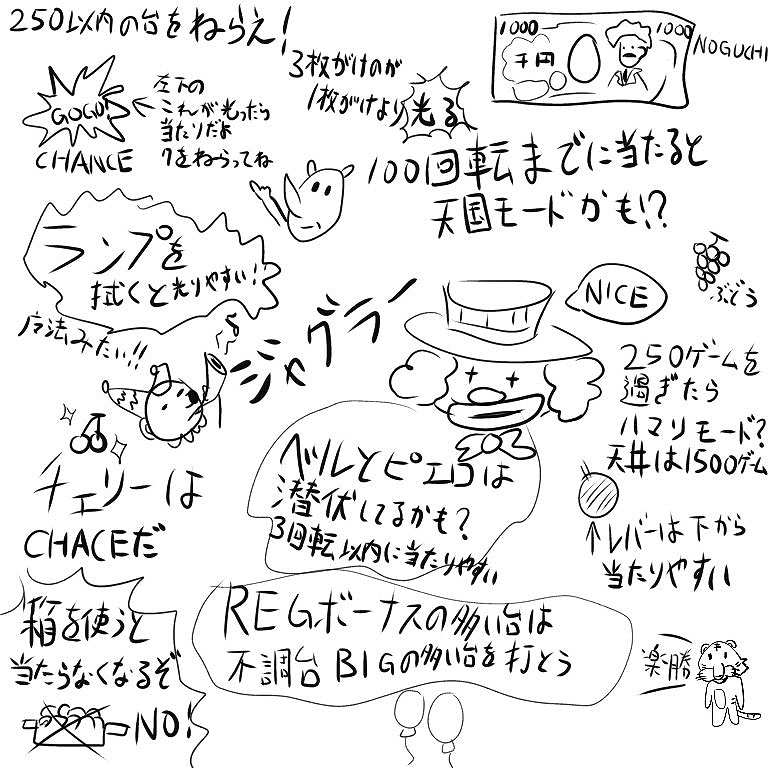 250以内の台をねらえ!
GOGO!
CHANCE
左下の
これが光ったら
当たりだよ
7をねらってね
3枚がけのが
1枚がけより光る
1000
1000
千円
NOGUCHI
100回転までに当たると
天国モードかも!?
ランプを
拭くと光りやすい!
魔法みたい!!
ジャグラー
NICE
ぶどう
250ゲームを
過ぎたら
ハマリモード?
天井は1500ゲーム
チェリーは
CHACEだ
ベルとピエロは
潜伏してるかも?
3回転以内に当たりやすい
↑レバーは下から
当たりやすい
箱を使うと
当たらなくなるぞ
NO!
REGボーナスの多い台は
不調台BIGの多い台を打とう
楽勝